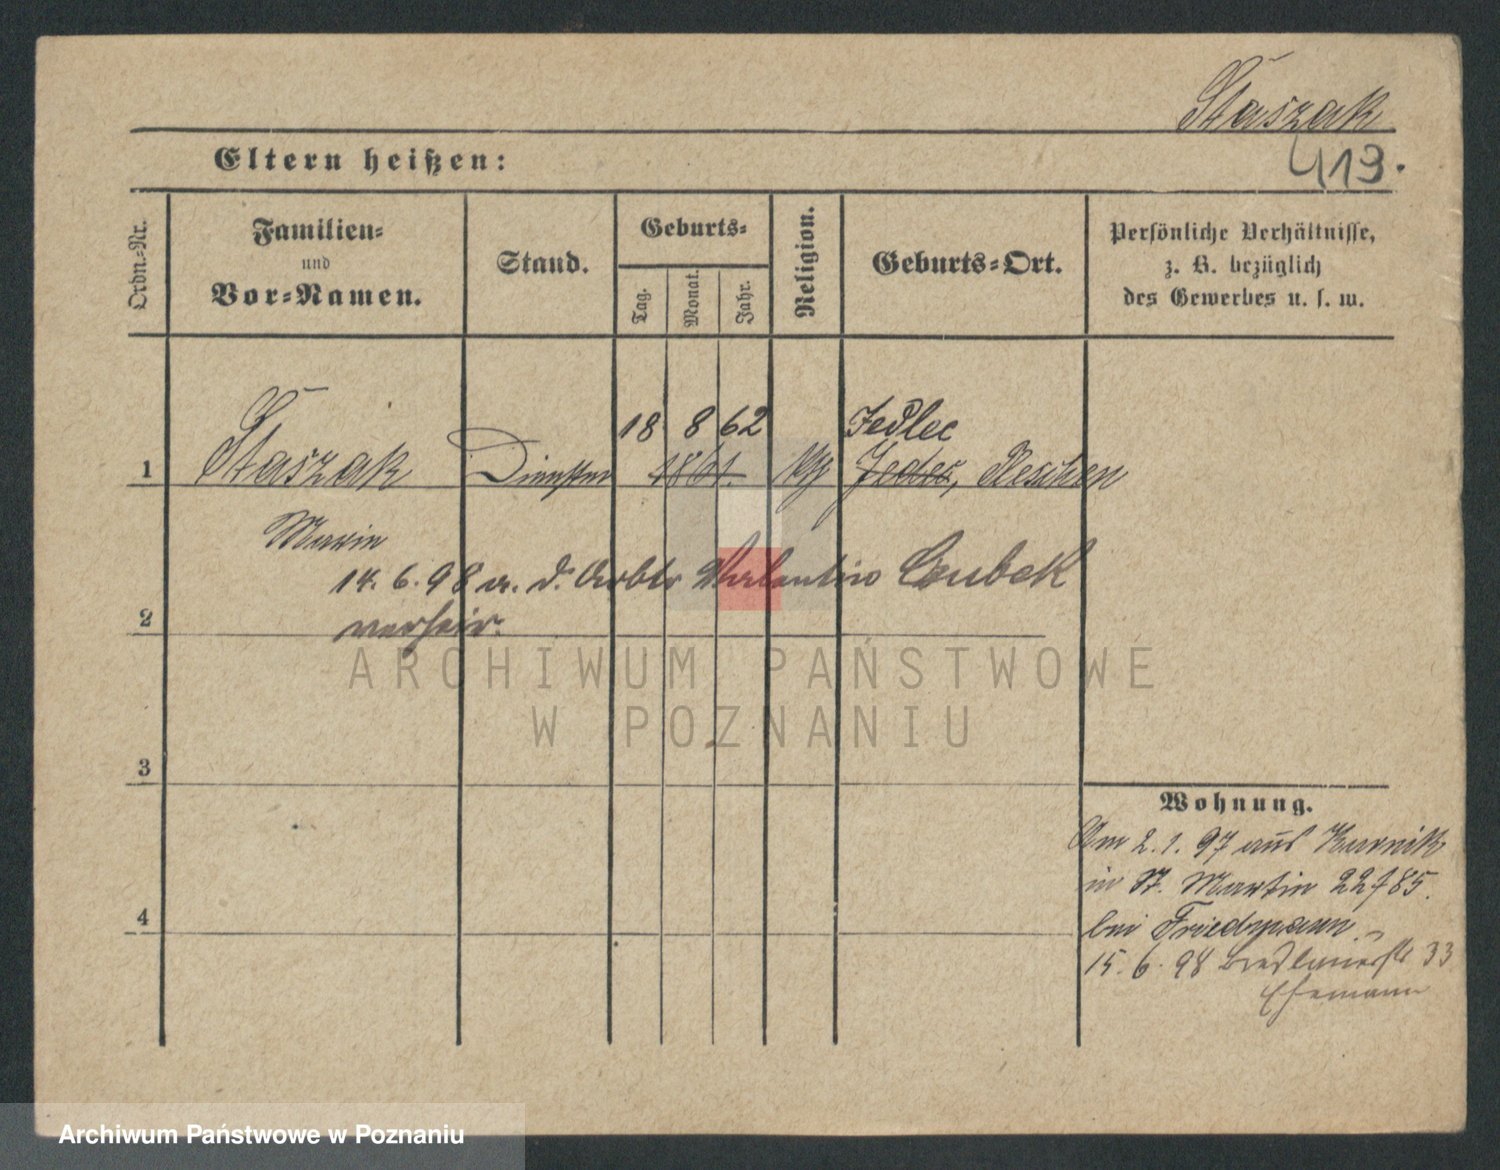 Staszak
419.
Eltern heißen:
Ordn.-Nr.
Familien-
und
Vor-Namen.
Stand.
Geburts-
Tag.
Monat.
Jahr.
Religion.
Geburts-Ort.
Persönliche Verhältnisse,
z. B. bezüglich
des Gewerbes u. s. w.
18 8 62 Jedlec
1 Staszak 1861. Jedec, Pleschen
Marie
14. 6. 98 a. d. Arbtr Valentino Czubek
2 verheir.
ARCHIWUM PAŃSTWOWE
W POZNANIU
3
Wohnung.
Am 2. 1. 97 aus Kurnik
in St. Martin 22/85.
4
bei Friedmann
15. 6. 98 Breslauerstr 33
Ehemann
Archiwum Państwowe w Poznaniu